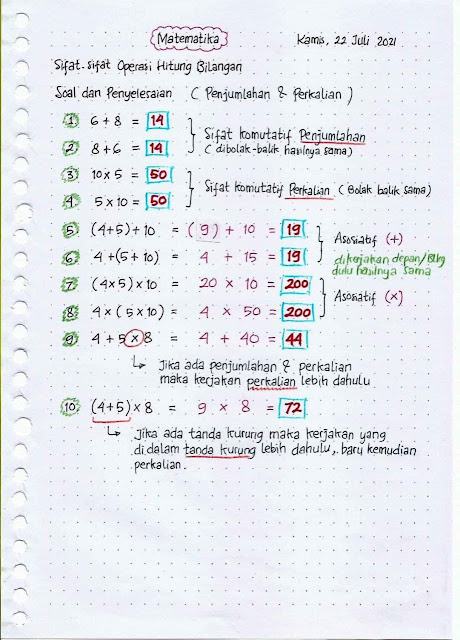 Matematika
Kamis, 22 Juli 2021
Sifat-sifat Operasi Hitung Bilangan
Soal dan Penyelesaian ( Penjumlahan & Perkalian )
1 6 + 8 = 14
Sifat komutatif Penjumlahan
( dibolak-balik hasilnya sama )
2 8 + 6 = 14
3 10 x 5 = 50
Sifat komutatif Perkalian ( Bolak balik sama )
4 5 x 10 = 50
5 (4+5) + 10 = (9) + 10 = 19
Asosiatif (+)
6 4 + (5 + 10) = 4 + 15 = 19
dikerjakan depan/Blkg
dulu hasilnya sama
7 (4 x 5) x 10 = 20 x 10 = 200
Asosiatif (x)
8 4 x ( 5 x 10) = 4 x 50 = 200
9 4 + 5 x 8 = 4 + 40 = 44
↳ Jika ada penjumlahan & perkalian
maka kerjakan perkalian lebih dahulu
10 (4+5) x 8 = 9 x 8 = 72
↳ Jika ada tanda kurung maka kerjakan yang
di dalam tanda kurung lebih dahulu, baru kemudian
perkalian.